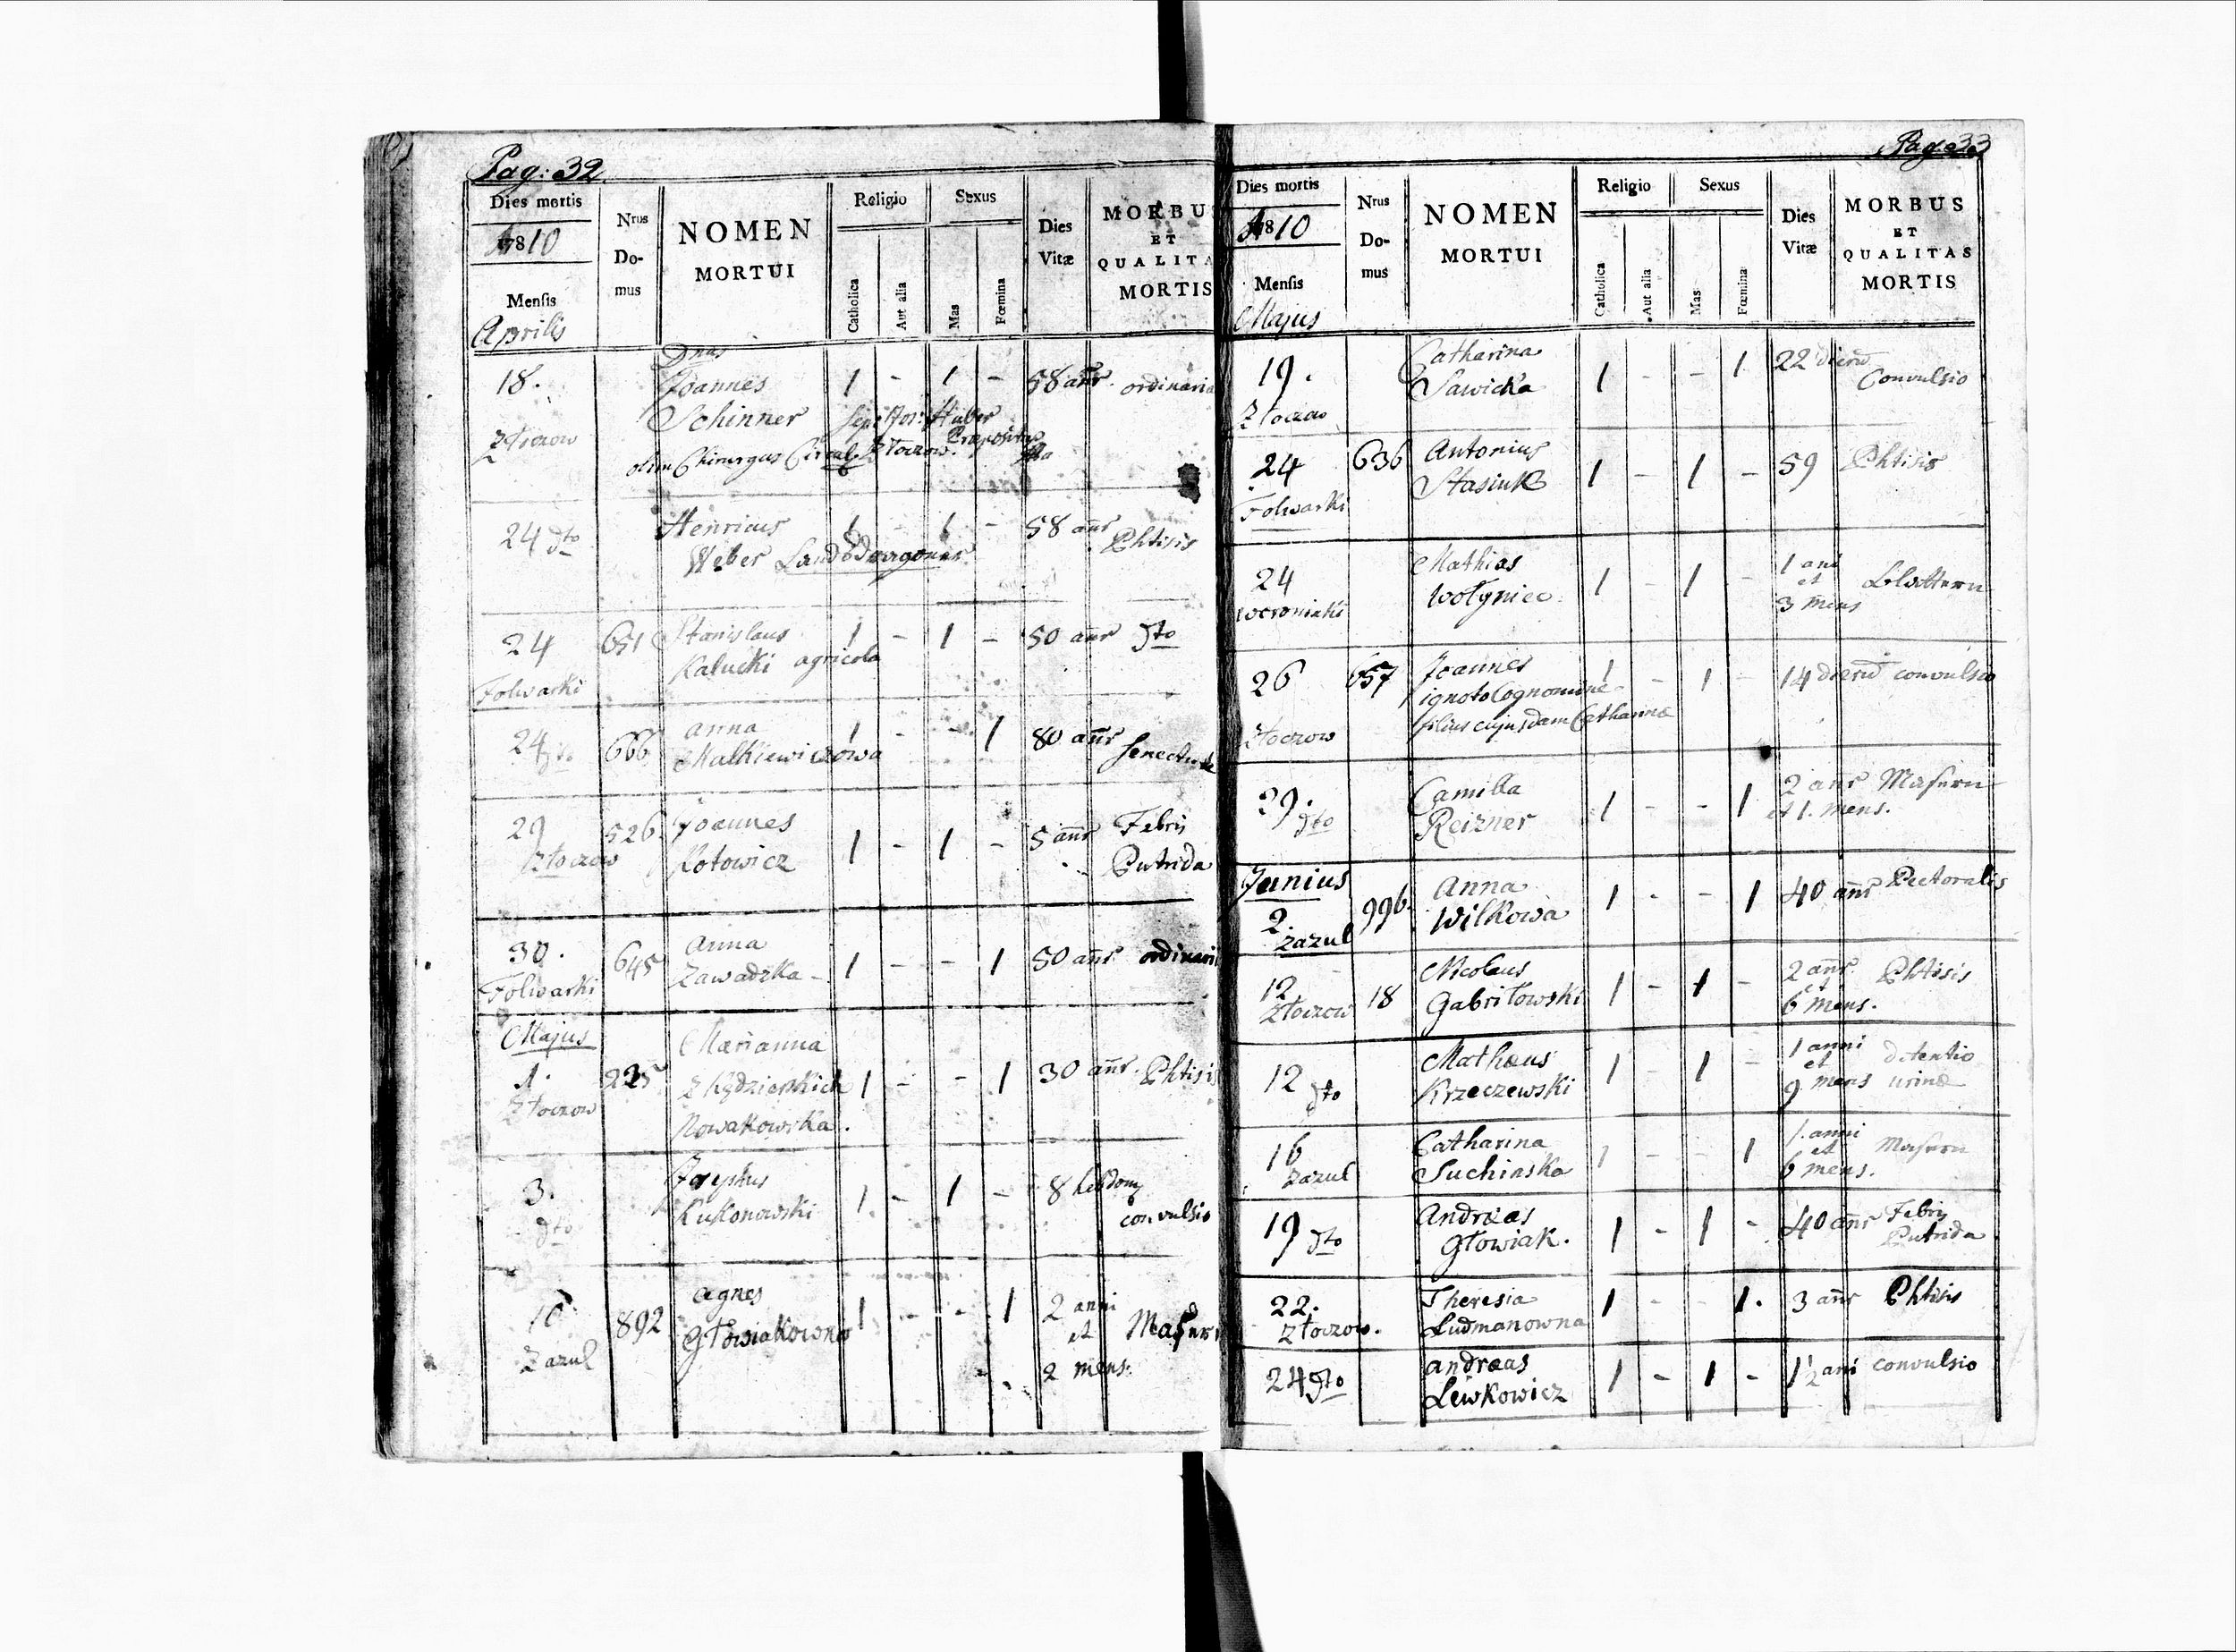 Pag: 32
Dies mortis
1810
Mensis
Aprilis
Nrus
Do-
mus
NOMEN
MORTUI
Religio
Catholica
Aut alia
Sexus
Mas
Fœmina
Dies
Vitæ
MORBUS
ET
QUALITA
MORTIS
18.
Złoczow
Dnus
Joannes
Schinner
olim Chirurgus Circul. Złoczow.
Huber
Præpositus
1 - 1 -
58 añr. ordinaria
24 dto
Henricus
Weber
1 - 1 -
58 añr
Phtisis
24
Folwarki
651
Stanislaus
Kalucki agricola
1 - 1 -
50 añr dto
24 dto
666
Anna
Malkiewiczowa
1 - - 1
80 añr
Senectute
29
Złoczow
526.
Joannes
Kotowicz
1 - 1 -
5 añr
Febris
Putrida
30.
Folwarki
645
Anna
Zawadzka -
1 - - 1
50 añr. ordinari
Majus
1.
Złoczow
225
Marianna
z
Nowakowska.
1 - - 1
30 añr. Phtisis
3.
dto
Kukonowski
1. - 1 -
8 hebdom
convulsio
10
Zazul
892
Agnes
Głowiakowna
1 - - 1
2 anni
et
2 mens.
Masern
Pag: 33
Dies mortis
1810
Mensis
Majus
Nrus
Do-
mus
NOMEN
MORTUI
Religio
Catholica
Aut alia
Sexus
Mas
Fœmina
Dies
Vitæ
MORBUS
ET
QUALITAS
MORTIS
19.
Złoczow
Catharina
Sawicka
1 - - 1
22 dierū
Convulsio
24
Folwarki
636
Antonius
Stasiuk
1 - 1 -
59 Phtisis
24
Woroniaki
Mathias
Wołyniec
1 - 1 -
1 ani
et
3 mens
Blattern
26
Złoczow
657
Joannes
ignoto Cognomine
filius cujusdam Catharinæ
1 - 1 -
14 dierū convulsio
29.
dto
Camilla
Reizner
1 - - 1
2 anr
et 1. mens.
Masern
Junius
2.
Zazul
996.
Anna
Wilkowa
1 - - 1
40 añr Pectoralis
12
Złoczow
18
Nicolaus
Gabriłowski
1 - 1 -
2 añr.
et
6 mens.
Phtisis
12
dto
Mathæus
Krzeczewski
1 - 1 -
1 anni
et
9 mens
detentio
urinæ
16
Zazul
Catharina
Suchinska
1 - - 1
1. anni
et
6 mens.
Masern
19 dto
Andreas
Głowiak.
1 - 1 -
40 añr
Febris
Putrida
22.
Złoczow.
Theresia
Ludmanowna
1 - - 1.
3 añr Phtisis
24 dto
Andreas
Lewkowicz
1 - 1 -
1½ ani convulsio